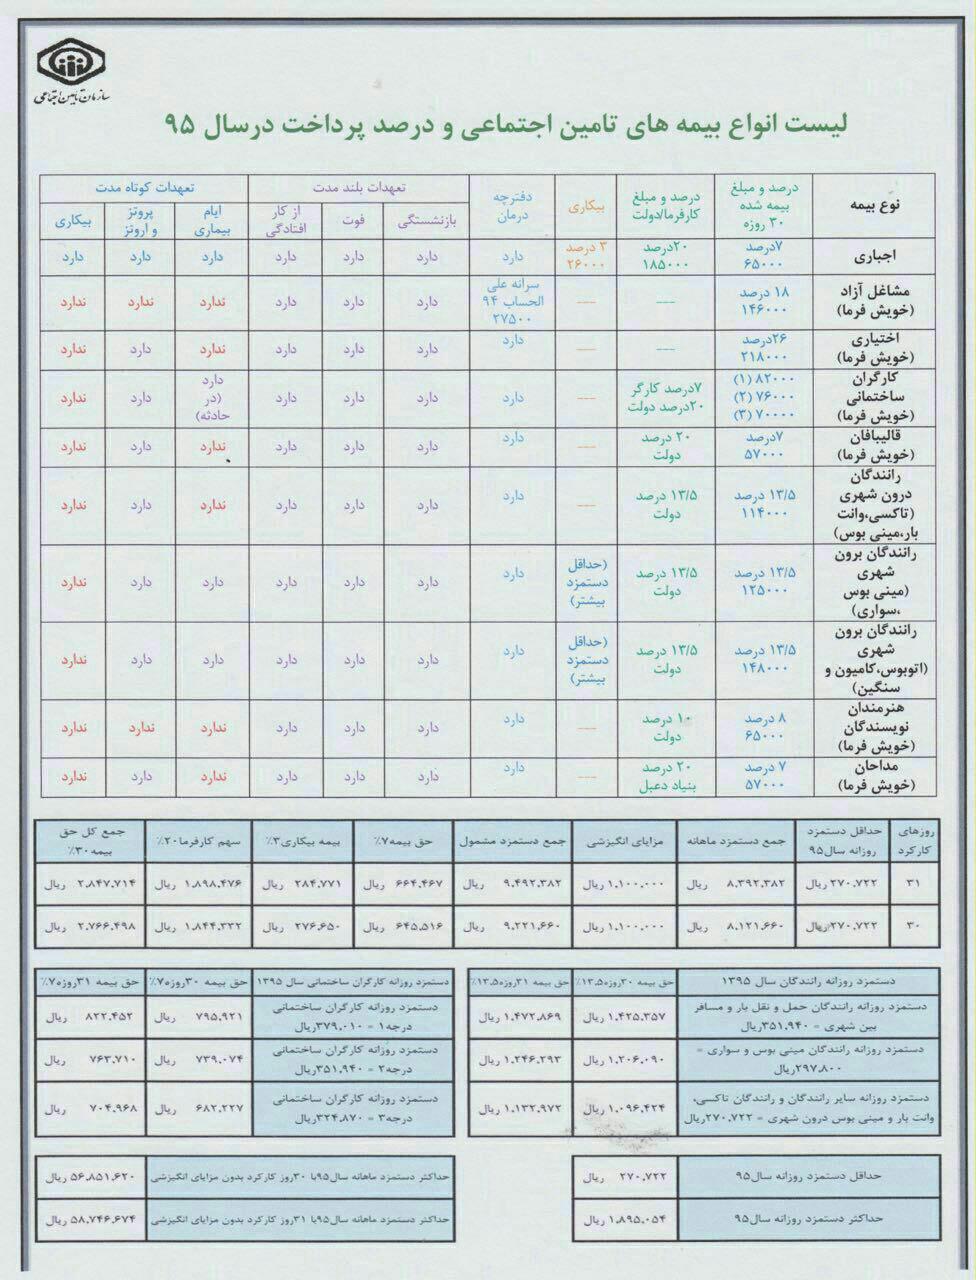 سازمان تأمین اجتماعی
لیست انواع بیمه های تامین اجتماعی و درصد پرداخت درسال ۹۵
نوع بیمه | درصد و مبلغ بیمه شده ۳۰ روزه | درصد و مبلغ کارفرما/دولت | بیکاری | دفترچه درمان | تعهدات بلند مدت | تعهدات کوتاه مدت
بازنشستگی | فوت | از کار افتادگی | ایام بیماری | پروتز و اروتز | بیکاری
اجباری | ۷درصد ۶۵۰۰۰ | ۲۰درصد ۱۸۵۰۰۰ | ۳ درصد ۲۶۰۰۰ | دارد | دارد | دارد | دارد | دارد | دارد | دارد
مشاغل آزاد (خویش فرما) | ۱۸ درصد ۱۴۶۰۰۰ | --- | --- | سرانه علی الحساب ۹۴ ۲۷۵۰۰ | دارد | دارد | دارد | ندارد | ندارد | ندارد
اختیاری (خویش فرما) | ۲۶درصد ۲۱۸۰۰۰ | --- | --- | دارد | دارد | دارد | دارد | ندارد | دارد | ندارد
کارگران ساختمانی (خویش فرما) | ۸۲۰۰۰ (۱) ۷۶۰۰۰ (۲) ۷۰۰۰۰ (۳) | ۷درصد کارگر ۲۰درصد دولت | --- | دارد | دارد | دارد | دارد | دارد (در حادثه) | دارد | ندارد
قالیبافان (خویش فرما) | ۷درصد ۵۷۰۰۰ | ۲۰ درصد دولت | --- | دارد | دارد | دارد | دارد | ندارد | دارد | ندارد
رانندگان درون شهری (تاکسی،وانت بار،مینی بوس) | ۱۳/۵ درصد ۱۱۴۰۰۰ | ۱۳/۵ درصد دولت | --- | دارد | دارد | دارد | دارد | ندارد | دارد | ندارد
رانندگان برون شهری (مینی بوس ،سواری) | ۱۳/۵ درصد ۱۲۵۰۰۰ | ۱۳/۵ درصد دولت | (حداقل دستمزد بیشتر) | دارد | دارد | دارد | دارد | دارد | دارد | ندارد
رانندگان برون شهری (اتوبوس،کامیون و سنگین) | ۱۳/۵ درصد ۱۴۸۰۰۰ | ۱۳/۵ درصد دولت | (حداقل دستمزد بیشتر) | دارد | دارد | دارد | دارد | دارد | دارد | ندارد
هنرمندان نویسندگان (خویش فرما) | ۸ درصد ۶۵۰۰۰ | ۱۰ درصد دولت | --- | دارد | دارد | دارد | دارد | ندارد | ندارد | ندارد
مداحان (خویش فرما) | ۷ درصد ۵۷۰۰۰ | ۲۰ درصد بنیاد دعبل | --- | دارد | دارد | دارد | دارد | ندارد | دارد | ندارد
روزهای کارکرد | حداقل دستمزد روزانه سال۹۵ | جمع دستمزد ماهانه | مزایای انگیزشی | جمع دستمزد مشمول | حق بیمه۷٪ | بیمه بیکاری۳٪ | سهم کارفرما۲۰٪ | جمع کل حق بیمه۳۰٪
۳۱ | ۲۷۰،۷۲۲ریال | ۸،۳۹۲،۳۸۲ ریال | ۱،۱۰۰،۰۰۰ ریال | ۹،۴۹۲،۳۸۲ ریال | ۶۶۴،۴۶۷ ریال | ۲۸۴،۷۷۱ ریال | ۱،۸۹۸،۴۷۶ ریال | ۲،۸۴۷،۷۱۴ ریال
۳۰ | ۲۷۰،۷۲۲ریال | ۸،۱۲۱،۶۶۰ ریال | ۱،۱۰۰،۰۰۰ ریال | ۹،۲۲۱،۶۶۰ ریال | ۶۴۵،۵۱۶ ریال | ۲۷۶،۶۵۰ ریال | ۱،۸۴۴،۳۳۲ ریال | ۲،۷۶۶،۴۹۸ ریال
دستمزد روزانه رانندگان سال ۱۳۹۵ | حق بیمه ۳۰روزه۱۳،۵٪ | حق بیمه ۳۱روزه۱۳،۵٪
دستمزد روزانه رانندگان حمل و نقل بار و مسافر بین شهری = ۳۵۱،۹۴۰ریال | ۱،۴۲۵،۳۵۷ ریال | ۱،۴۷۲،۸۶۹ ریال
دستمزد روزانه رانندگان مینی بوس و سواری = ۲۹۷،۸۰۰ریال | ۱،۲۰۶،۰۹۰ ریال | ۱،۲۴۶،۲۹۳ ریال
دستمزد روزانه سایر رانندگان و رانندگان تاکسی، وانت بار و مینی بوس درون شهری = ۲۷۰،۷۲۲ریال | ۱،۰۹۶،۴۲۴ ریال | ۱،۱۳۲،۹۷۲ ریال
دستمزد روزانه کارگران ساختمانی سال ۱۳۹۵ | حق بیمه ۳۰روزه۷٪ | حق بیمه ۳۱روزه۷٪
دستمزد روزانه کارگران ساختمانی درجه۱ = ۳۷۹،۰۱۰ریال | ۷۹۵،۹۲۱ ریال | ۸۲۲،۴۵۲ ریال
دستمزد روزانه کارگران ساختمانی درجه۲ = ۳۵۱،۹۴۰ریال | ۷۳۹،۰۷۴ ریال | ۷۶۳،۷۱۰ ریال
دستمزد روزانه کارگران ساختمانی درجه۳ = ۳۲۴،۸۷۰ریال | ۶۸۲،۲۲۷ ریال | ۷۰۴،۹۶۸ ریال
حداقل دستمزد روزانه سال۹۵ | ۲۷۰،۷۲۲ ریال
حداکثر دستمزد روزانه سال۹۵ | ۱،۸۹۵،۰۵۴ ریال
حداکثر دستمزد ماهانه سال۹۵با ۳۰روز کارکرد بدون مزایای انگیزشی | ۵۶،۸۵۱،۶۲۰ ریال
حداکثر دستمزد ماهانه سال۹۵با ۳۱روز کارکرد بدون مزایای انگیزشی | ۵۸،۷۴۶،۶۷۴ ریال